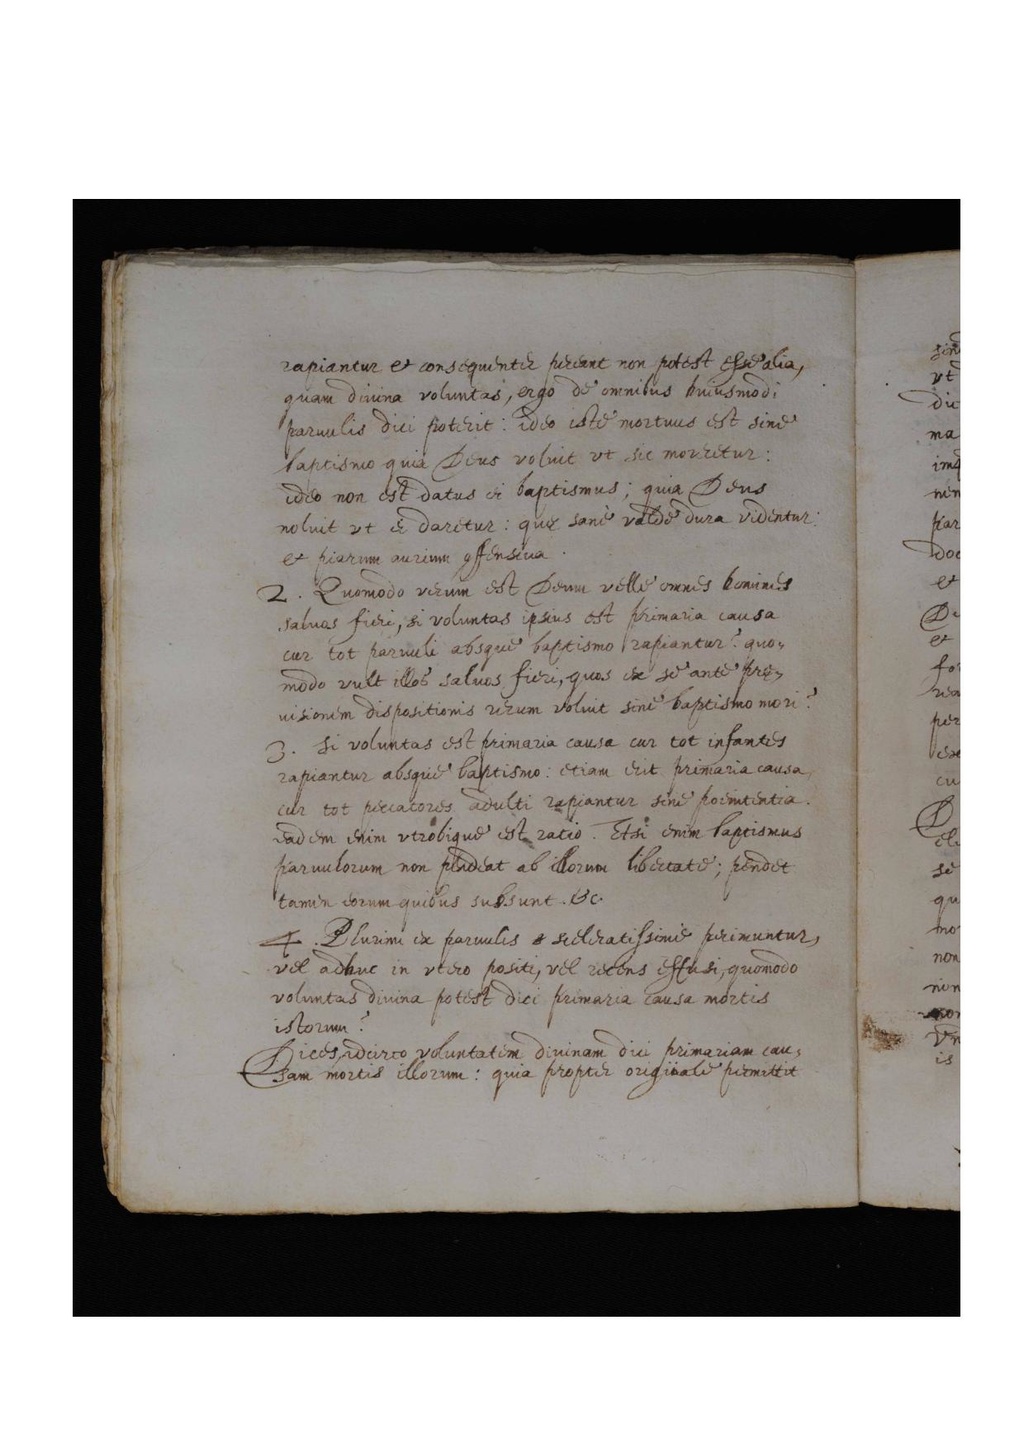 rapiantur et consequenter pereant non potest esse alia,
quam diuina voluntas, ergo de omnibus huiusmodi
paruulis dici poterit: ideo iste mortuus est sine
baptismo quia Deus voluit vt sic moreretur:
ideo non est datus ei baptismus; quia Deus
noluit vt ei daretur: quæ sanè valde dura videntur
et piarum aurium offensiua.
2. Quomodo verum est Deum velle omnes homines
saluos fieri, si voluntas ipsius est primaria causa
cur tot paruuli absque baptismo rapiantur? quo-
modo vult illos saluos fieri, quos ex se ante præ-
uisionem dispositionis rerum voluit sine baptismo mori?
3. Si voluntas est primaria causa cur tot infantes
rapiantur absque baptismo: etiam erit primaria causa
cur tot peccatores adulti rapiantur sine poenitentia.
eadem enim vtrobique est ratio. Etsi enim baptismus
paruulorum non pendeat ab illorum libertate; pendet
tamen eorum quibus subsunt. &c.
4. Plurimi ex paruulis sceleratissime perimuntur,
vel adhuc in vtero positi, vel recens effusi, quomodo
voluntas diuina potest dici primaria causa mortis
istorum?
Dices, idcirco voluntatem diuinam dici primariam cau-
sam mortis illorum: quia propter originale permittit
sine
vt
dic
ma
nem
par
doc
et
De
et
per
cu
D
se
qu
mo
non
non
non
is